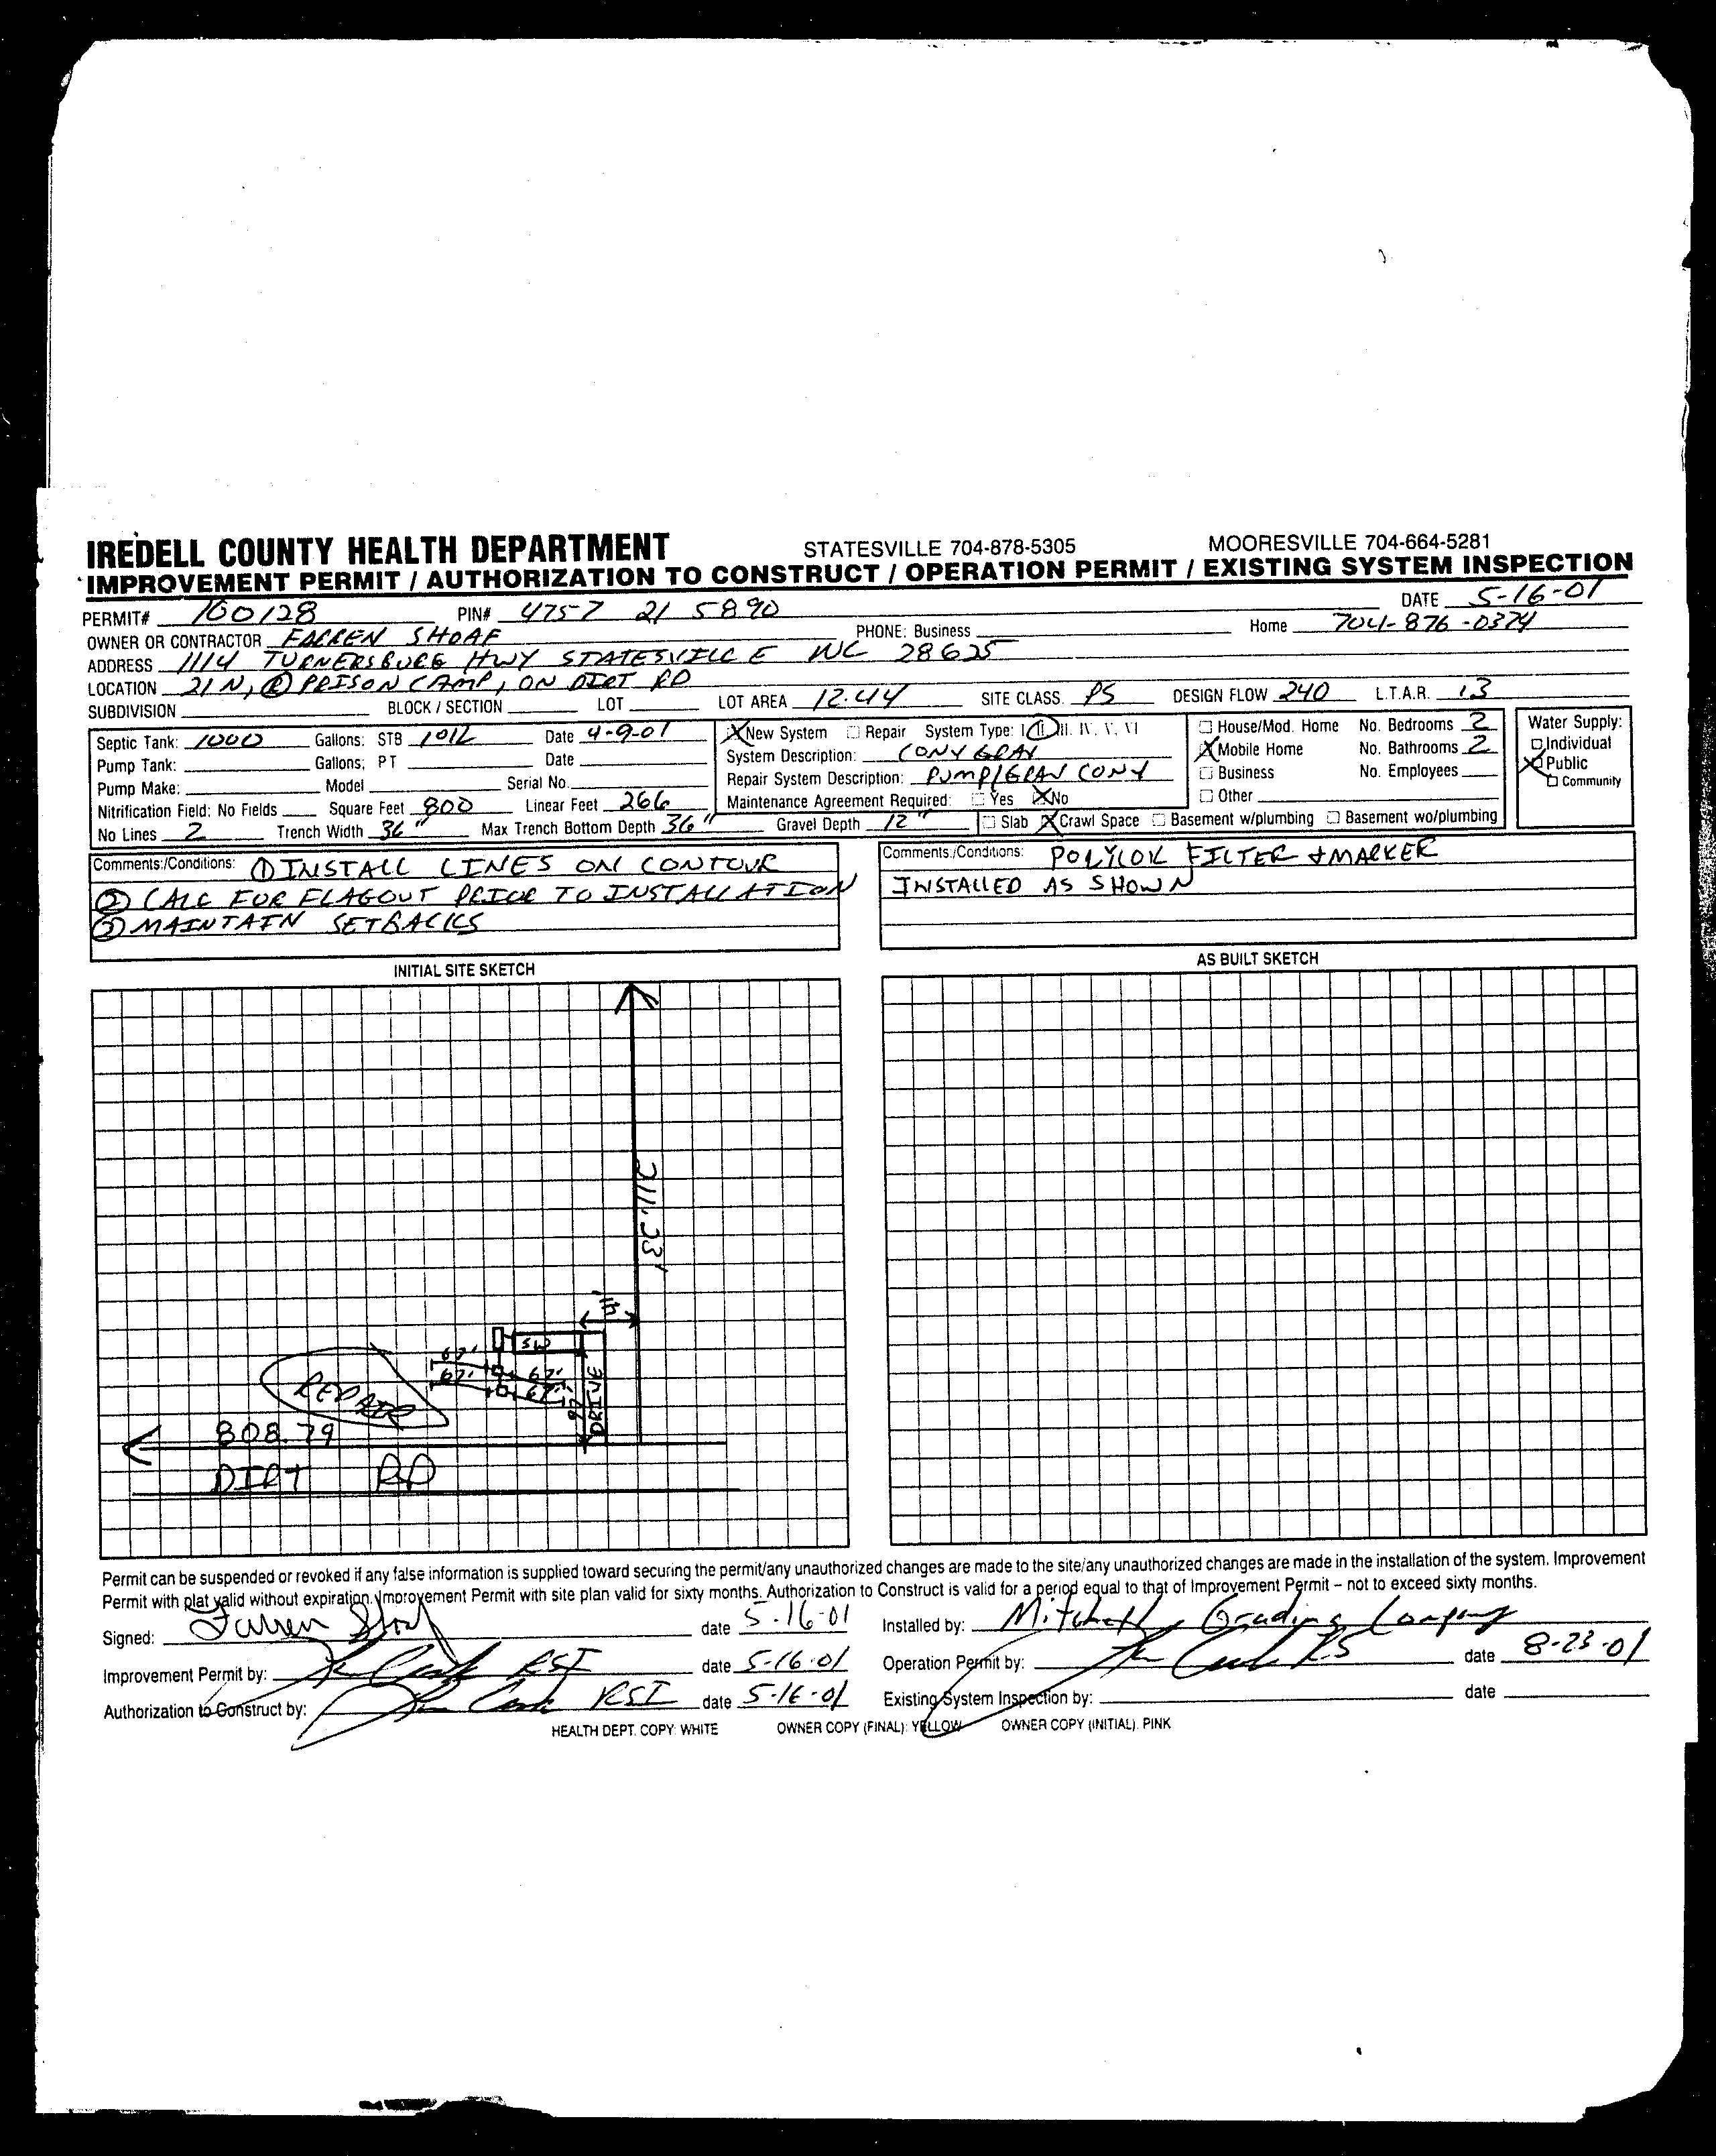 IREDELL COUNTY HEALTH DEPARTMENT STATESVILLE 704-878-5305 MOORESVILLE 704-664-5281
IMPROVEMENT PERMIT / AUTHORIZATION TO CONSTRUCT / OPERATION PERMIT / EXISTING SYSTEM INSPECTION
PERMIT# 100128 PIN# 4757 21 5890 DATE 5-16-01
OWNER OR CONTRACTOR FARREN SHOAF PHONE: Business Home 704-876-0374
ADDRESS 1114 TURNERSBURG HWY STATESVILLE NC 28625
LOCATION 21 N, Ⓡ PRISON CAMP, ON DIRT RD
SUBDIVISION BLOCK / SECTION LOT LOT AREA 12.44 SITE CLASS. PS DESIGN FLOW 240 L.T.A.R. .3
Septic Tank: 1000 Gallons: STB 1012 Date 4-9-01
Pump Tank: Gallons; PT Date
Pump Make: Model Serial No.
Nitrification Field: No Fields Square Feet 800 Linear Feet 266
No Lines 2 Trench Width 36" Max Trench Bottom Depth 36" Gravel Depth 12"
X New System Repair System Type: I II III. IV. V. VI
System Description: CONV GRAV
Repair System Description: PUMP/GRAV CONV
Maintenance Agreement Required: Yes X No
Slab X Crawl Space Basement w/plumbing Basement wo/plumbing
House/Mod. Home No. Bedrooms 2
X Mobile Home No. Bathrooms 2
Business No. Employees
Other
Water Supply:
Individual
X Public
Community
Comments:/Conditions: ① INSTALL LINES ON CONTOUR
② CALL FOR FLAGOUT PRIOR TO INSTALLATION
③ MAINTAIN SETBACKS
Comments:/Conditions: POLYLOK FILTER + MARKER
INSTALLED AS SHOWN
INITIAL SITE SKETCH
211.33'
SW
67'
67' 67'
67'
DRIVE
REPAIR
808.79
DIRT RD
AS BUILT SKETCH
Permit can be suspended or revoked if any false information is supplied toward securing the permit/any unauthorized changes are made to the site/any unauthorized changes are made in the installation of the system. Improvement
Permit with plat valid without expiration. Improvement Permit with site plan valid for sixty months. Authorization to Construct is valid for a period equal to that of Improvement Permit – not to exceed sixty months.
Signed: Farren Shoaf date 5-16-01 Installed by: Mitchell Grading Company
Improvement Permit by: RSI date 5-16-01 Operation Permit by: RS date 8-23-01
Authorization to Construct by: RSI date 5-16-01 Existing System Inspection by: date
HEALTH DEPT. COPY: WHITE OWNER COPY (FINAL): YELLOW OWNER COPY (INITIAL). PINK